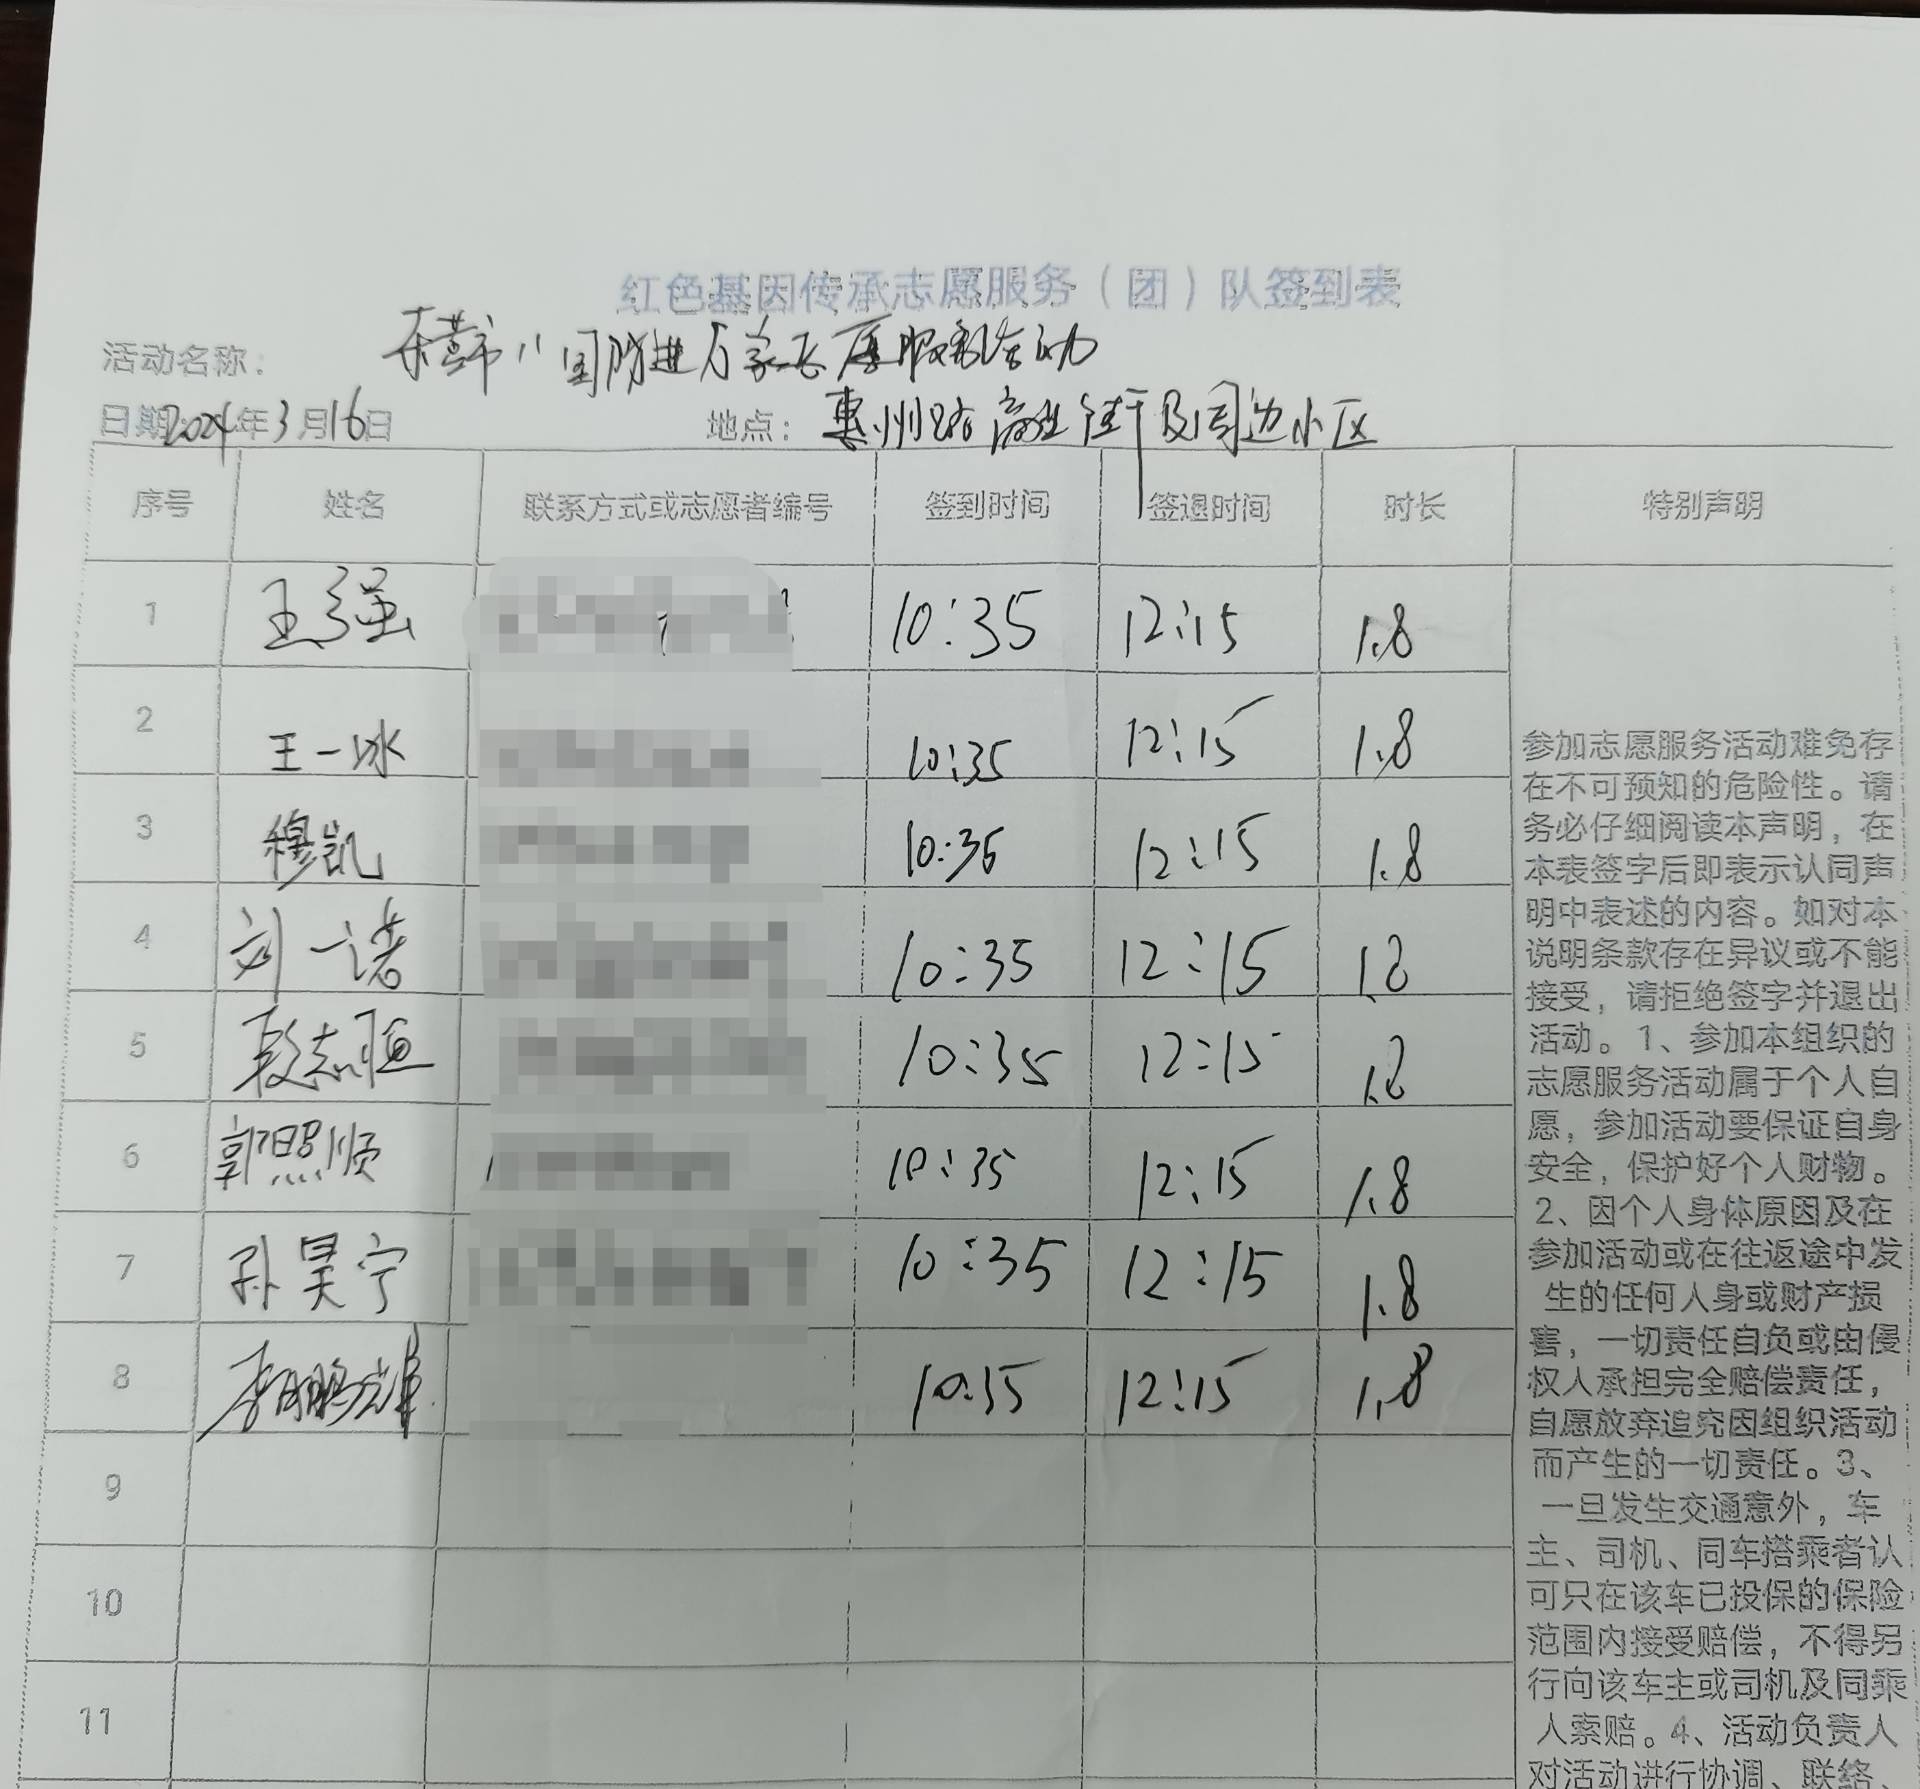 红色基因传承志愿服务（团）队签到表
活动名称：东营市"国防进万家志愿服务活动
日期2024年3月16日 地点：惠州路商业街及周边小区
序号 姓名 联系方式或志愿者编号 签到时间 签退时间 时长 特别声明
1 王强 10:35 12:15 1.8
2 王一冰 10:35 12:15 1.8
3 穆凯 10:35 12:15 1.8
4 刘一诺 10:35 12:15 1.8
5 段志恒 10:35 12:15 1.8
6 郭照顺 10:35 12:15 1.8
7 孙昊宁 10:35 12:15 1.8
8 李鹏 10:35 12:15 1.8
9
10
11
参加志愿服务活动难免存
在不可预知的危险性。请
务必仔细阅读本声明，在
本表签字后即表示认同声
明中表述的内容。如对本
说明条款存在异议或不能
接受，请拒绝签字并退出
活动。1、参加本组织的
志愿服务活动属于个人自
愿，参加活动要保证自身
安全，保护好个人财物。
2、因个人身体原因及在
参加活动或在往返途中发
生的任何人身或财产损
害，一切责任自负或由侵
权人承担完全赔偿责任，
自愿放弃追究因组织活动
而产生的一切责任。3、
一旦发生交通意外，车
主、司机、同车搭乘者认
可只在该车已投保的保险
范围内接受赔偿，不得另
行向该车主或司机及同乘
人索赔。4、活动负责人
对活动进行协调、联络、